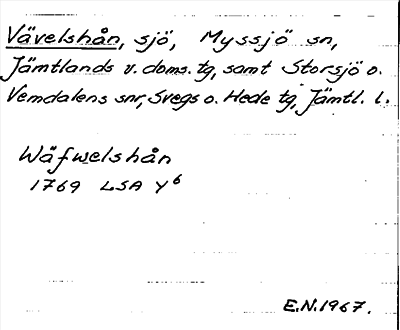 Vävelshån, sjö, Myssjö sn,
Jämtlands v. doms. tg, samt Storsjö o.
Vemdalens snr, Svegs o. Hede tg, Jämtl. l.
Wäfwelshån
1769 LSA Y6
E.N. 1967.